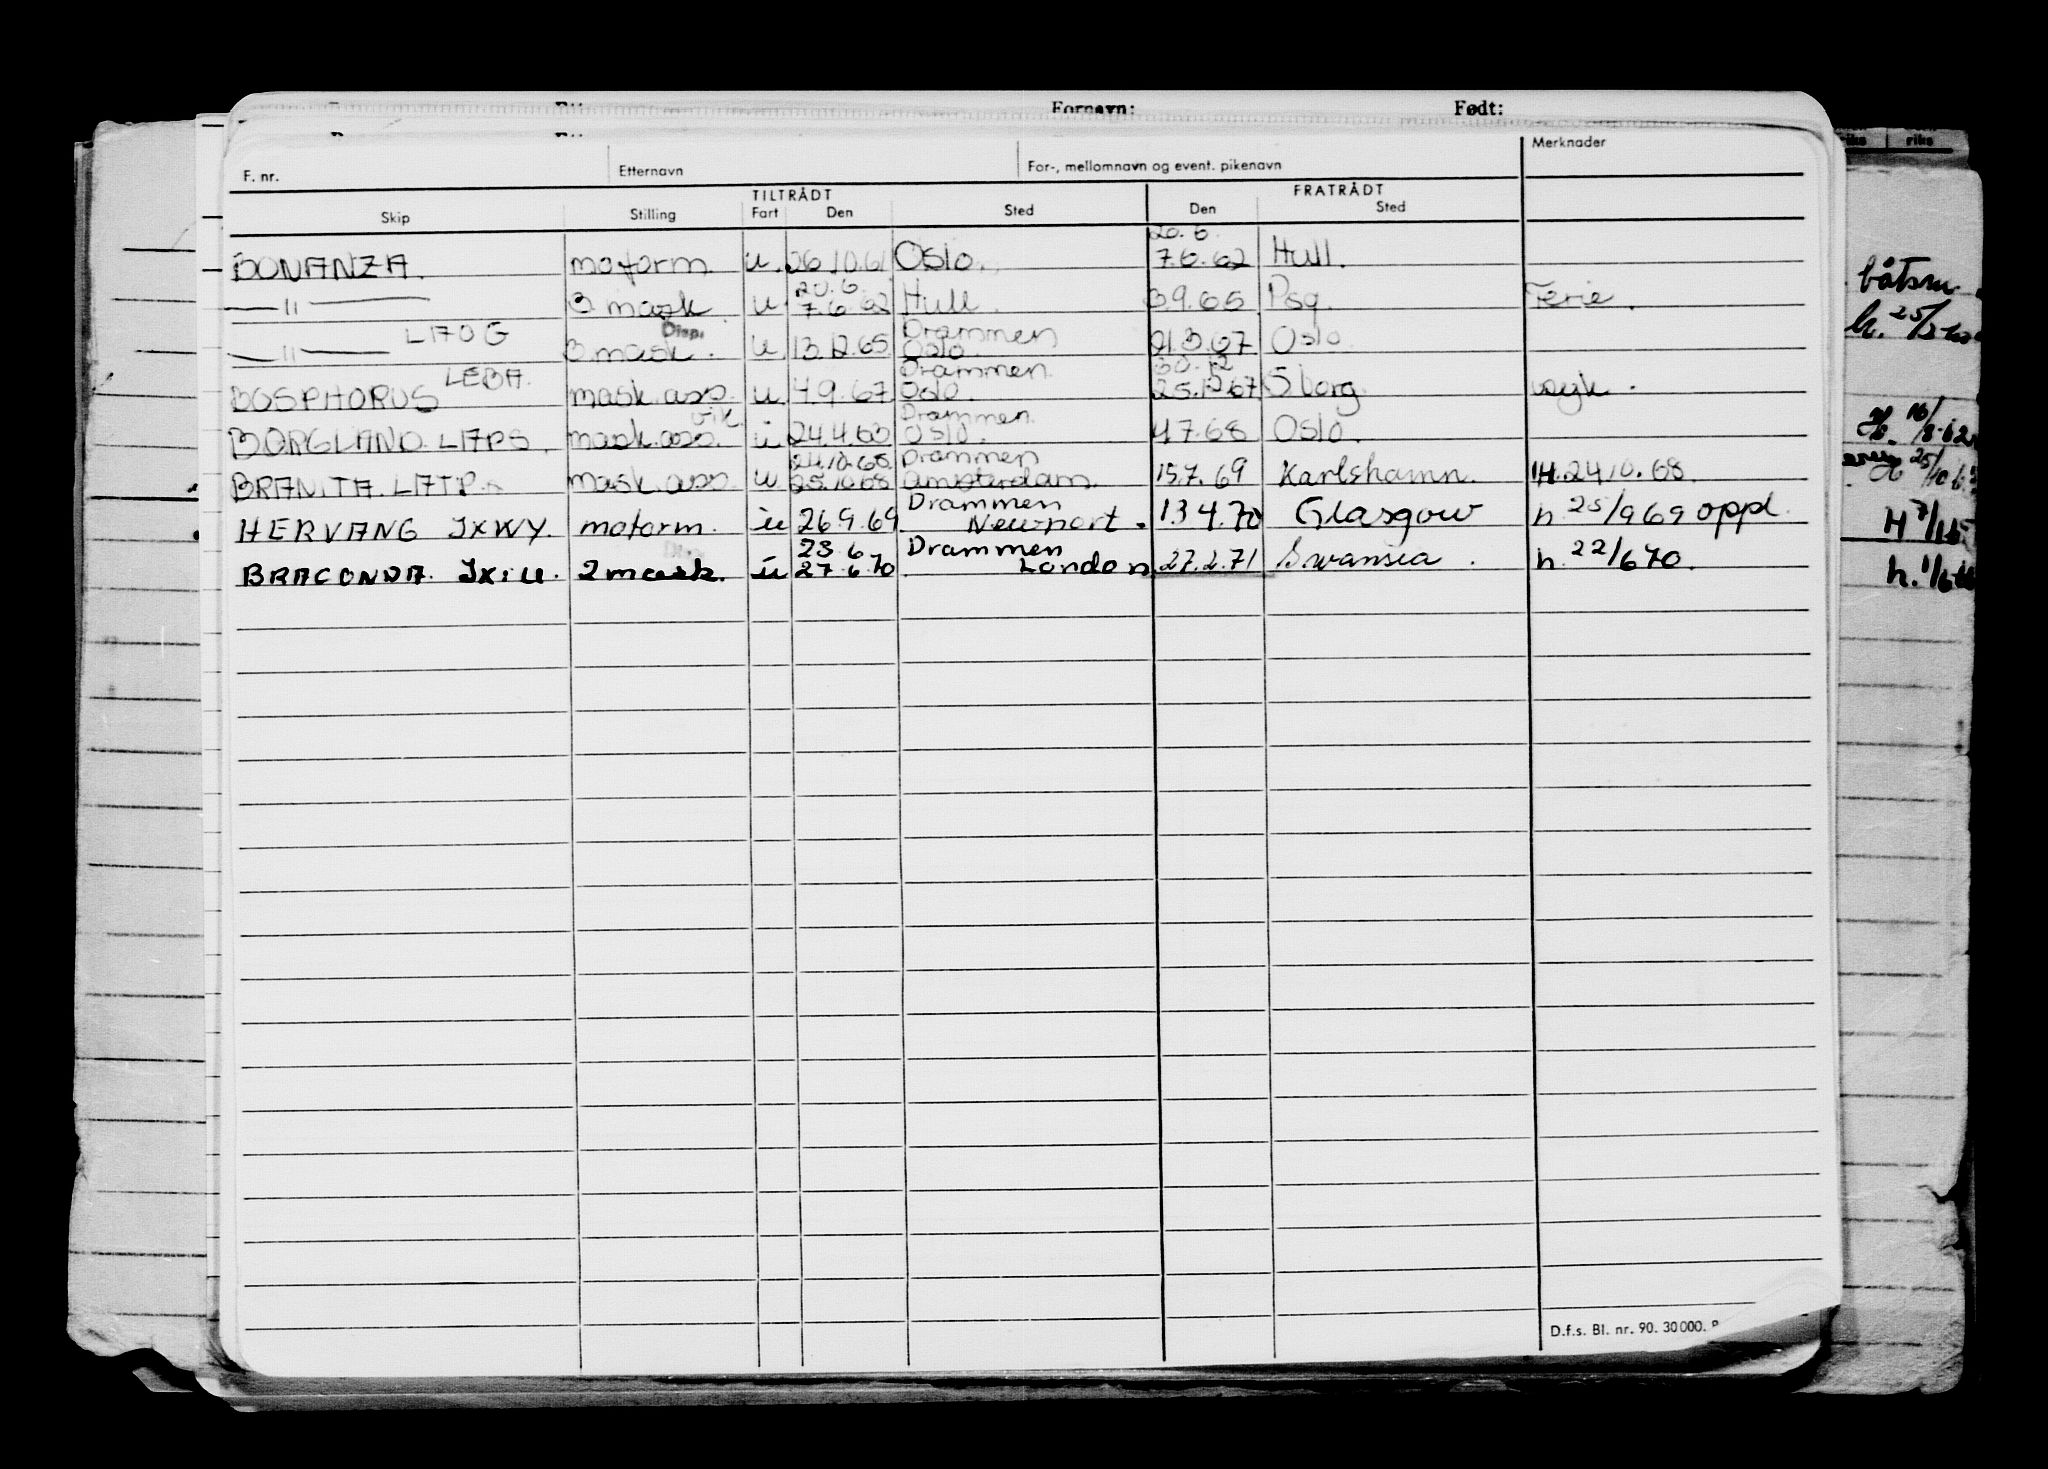 Fornavn: Født:
F. nr. Etternavn For-, mellomnavn og event. pikenavn Merknader
TILTRÅDT FRATRÅDT
Skip Stilling Fart Den Sted Den Sted
20.6.
BONANZA. motorm. u. 26.10.61 Oslo. 7.6.62 Hull.
20.6.
— " — 3 mask u 7.6.62 Hull. 3.9.65 Psg. Ferie.
LAOG Disp. Drammen
— " — 3 mask. u 13.12.65 Oslo. 21.3.67 Oslo.
LEBA. Drammen. 30.12
BOSPHORUS mask.ass. u. 4.9.67 Oslo. 25.12.67 S borg syk.
vik. Drammen.
BORGLAND. LAPS. mask.ass. u 24.4.68 Oslo. 4.7.68 Oslo.
24.10.68 Drammen
BRANITA. LATP. mask.ass. u. 25.10.68 Amsterdam. 15.7.69 Karlshamn. H. 24.10.68.
Drammen
HERVANG JXWY. motorm. u 26.9.69 Newport. 13.4.70 Glasgow h. 25/9 69 oppl.
23.6 Drammen
BRACONDA. JXIU. 2 mask. u 27.6.70 London. 27.2.71 Swansea. h. 22/6 70.
D.f.s. Bl. nr. 90. 30000.
båtsm.